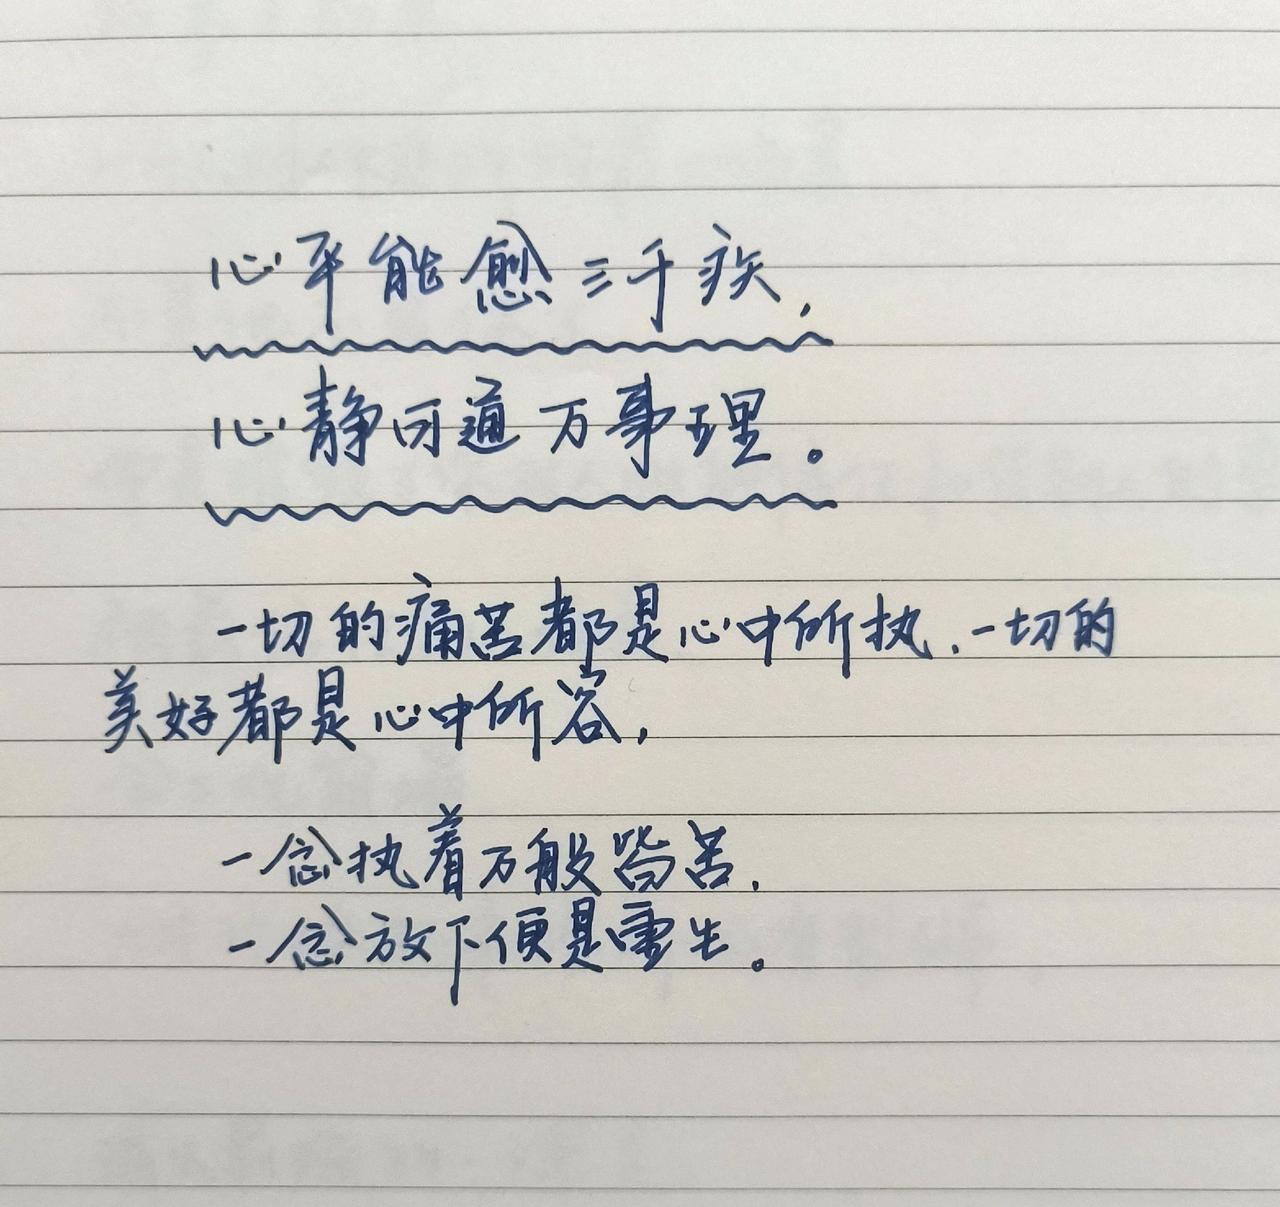 心平能愈三千疾,
心静可通万事理。
一切的痛苦都是心中所执,一切的
美好都是心中所容,
一念执着万般皆苦,
一念放下便是重生。